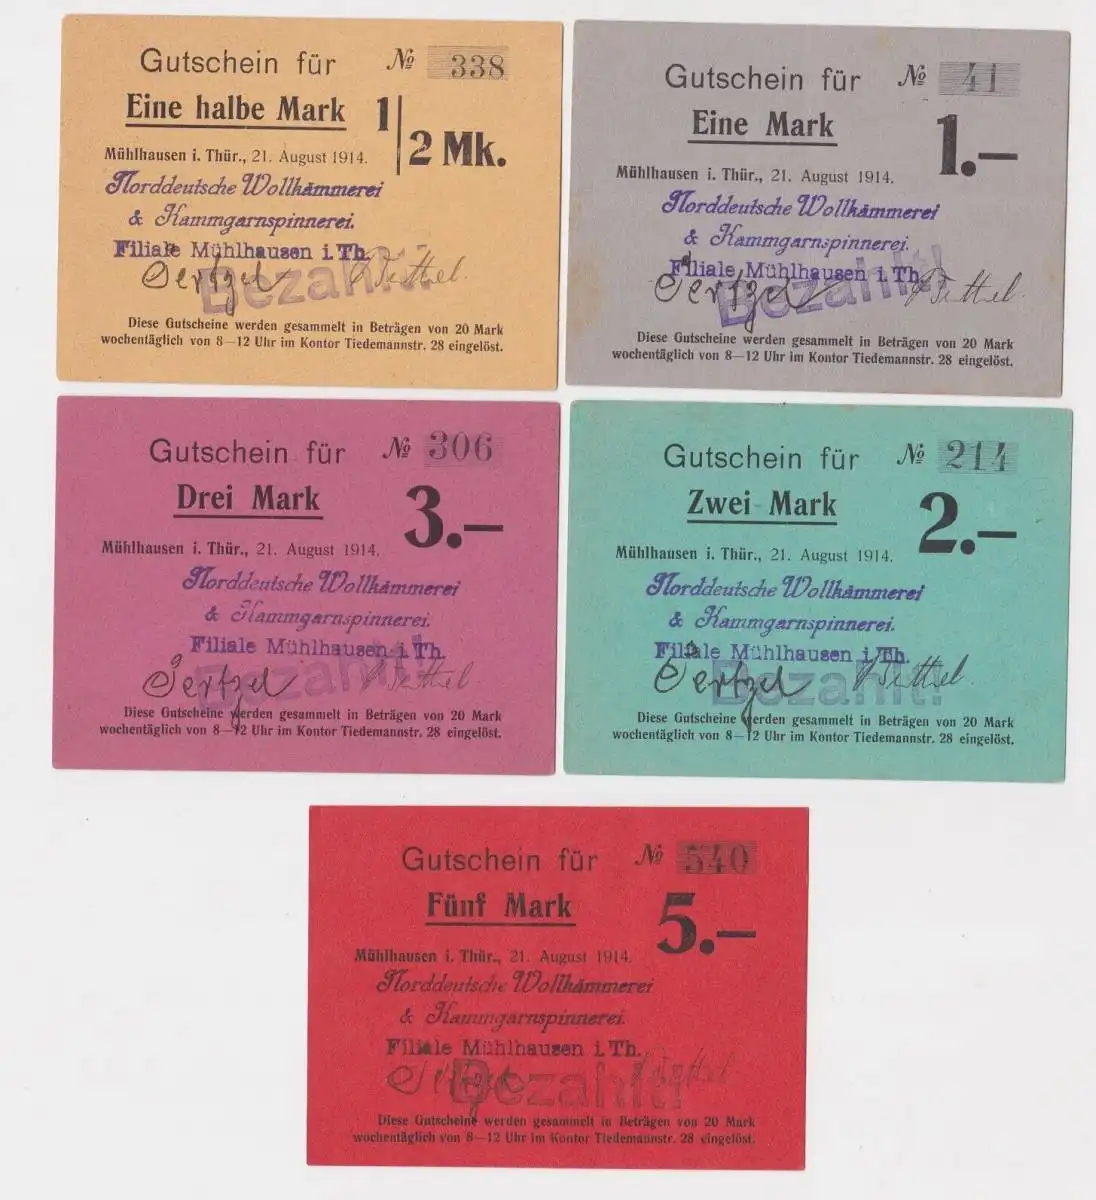 Gutschein für № 338
Eine halbe Mark 1/2 Mk.
Mühlhausen i. Thür., 21. August 1914.
Norddeutsche Wollkämmerei
& Kammgarnspinnerei.
Filiale Mühlhausen i. Th.
Bezahlt!
Diese Gutscheine werden gesammelt in Beträgen von 20 Mark
wochentäglich von 8—12 Uhr im Kontor Tiedemannstr. 28 eingelöst.
Gutschein für № 41
Eine Mark 1.—
Mühlhausen i. Thür., 21. August 1914.
Norddeutsche Wollkämmerei
& Kammgarnspinnerei.
Filiale Mühlhausen i. Th.
Bezahlt!
Diese Gutscheine werden gesammelt in Beträgen von 20 Mark
wochentäglich von 8—12 Uhr im Kontor Tiedemannstr. 28 eingelöst.
Gutschein für № 306
Drei Mark 3.—
Mühlhausen i. Thür., 21. August 1914.
Norddeutsche Wollkämmerei
& Kammgarnspinnerei.
Filiale Mühlhausen i. Th.
Bezahlt!
Diese Gutscheine werden gesammelt in Beträgen von 20 Mark
wochentäglich von 8—12 Uhr im Kontor Tiedemannstr. 28 eingelöst.
Gutschein für № 214
Zwei Mark 2.—
Mühlhausen i. Thür., 21. August 1914.
Norddeutsche Wollkämmerei
& Kammgarnspinnerei.
Filiale Mühlhausen i. Th.
Bezahlt!
Diese Gutscheine werden gesammelt in Beträgen von 20 Mark
wochentäglich von 8—12 Uhr im Kontor Tiedemannstr. 28 eingelöst.
Gutschein für № 540
Fünf Mark 5.—
Mühlhausen i. Thür., 21. August 1914.
Norddeutsche Wollkämmerei
& Kammgarnspinnerei.
Filiale Mühlhausen i. Th.
Bezahlt!
Diese Gutscheine werden gesammelt in Beträgen von 20 Mark
wochentäglich von 8—12 Uhr im Kontor Tiedemannstr. 28 eingelöst.